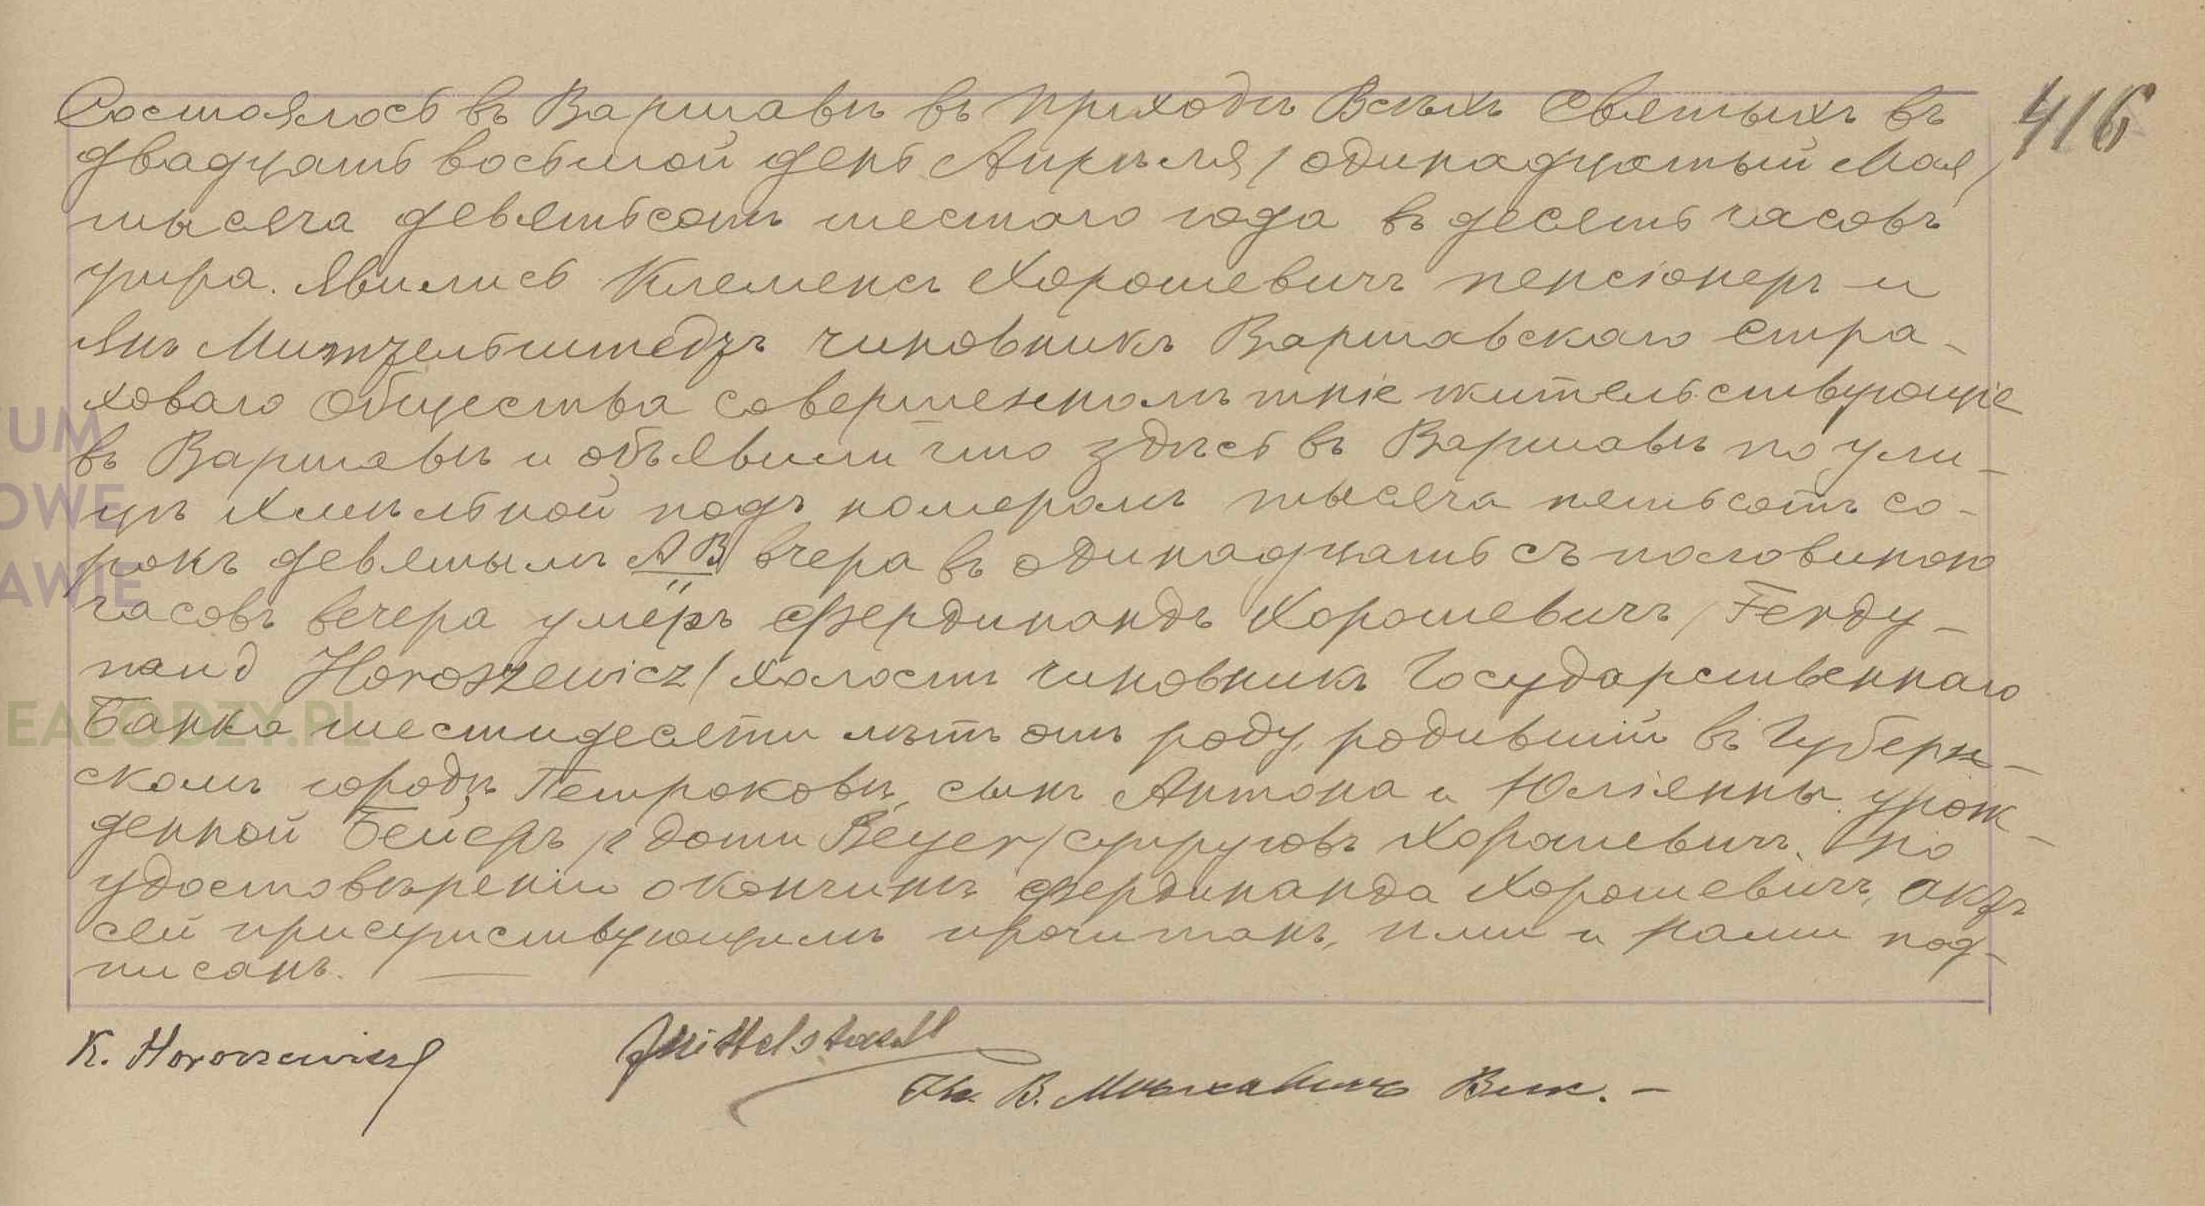 Состоялось въ Варшавѣ въ приходѣ Всѣхъ Святыхъ въ
416
двадцать восьмой день Апрѣля / одинадцатый Мая /
тысяча девятьсотъ шестого года въ десять часовъ
утра. Явились Клеменсъ Хорошевичъ пенсіонеръ и
Янъ Митзельштедзъ чиновникъ Варшавскаго Стра-
ховаго Общества совершеннолѣтніе жительствующіе
въ Варшавѣ и объявили что здѣсь въ Варшавѣ по ули-
цѣ Хмѣльной подъ номеромъ тысяча пятьсотъ со-
рокъ девятымъ АВ вчера въ одинадцать съ половиною
часовъ вечера умёръ Фердинандъ Хорошевичъ / Ferdy-
nand Horoszewicz / холостъ чиновникъ Государственнаго
Банка шестидесяти лѣтъ отъ роду, родившій въ Губерн-
скомъ городѣ Петроковѣ, сынъ Антона и Юліянны урож-
денной Бейеръ / z domu Beyer / супруговъ Хорошевичъ. По
удостовѣреніи о кончинѣ Фердинанда Хорошевичъ, актъ
сей присутствующимъ прочитанъ, ими и нами под-
писанъ.
K. Horoszewicz
JMittelstaedt
Кс. В. Вик. –
UM
OWE
AWIE
EALODZY.PL